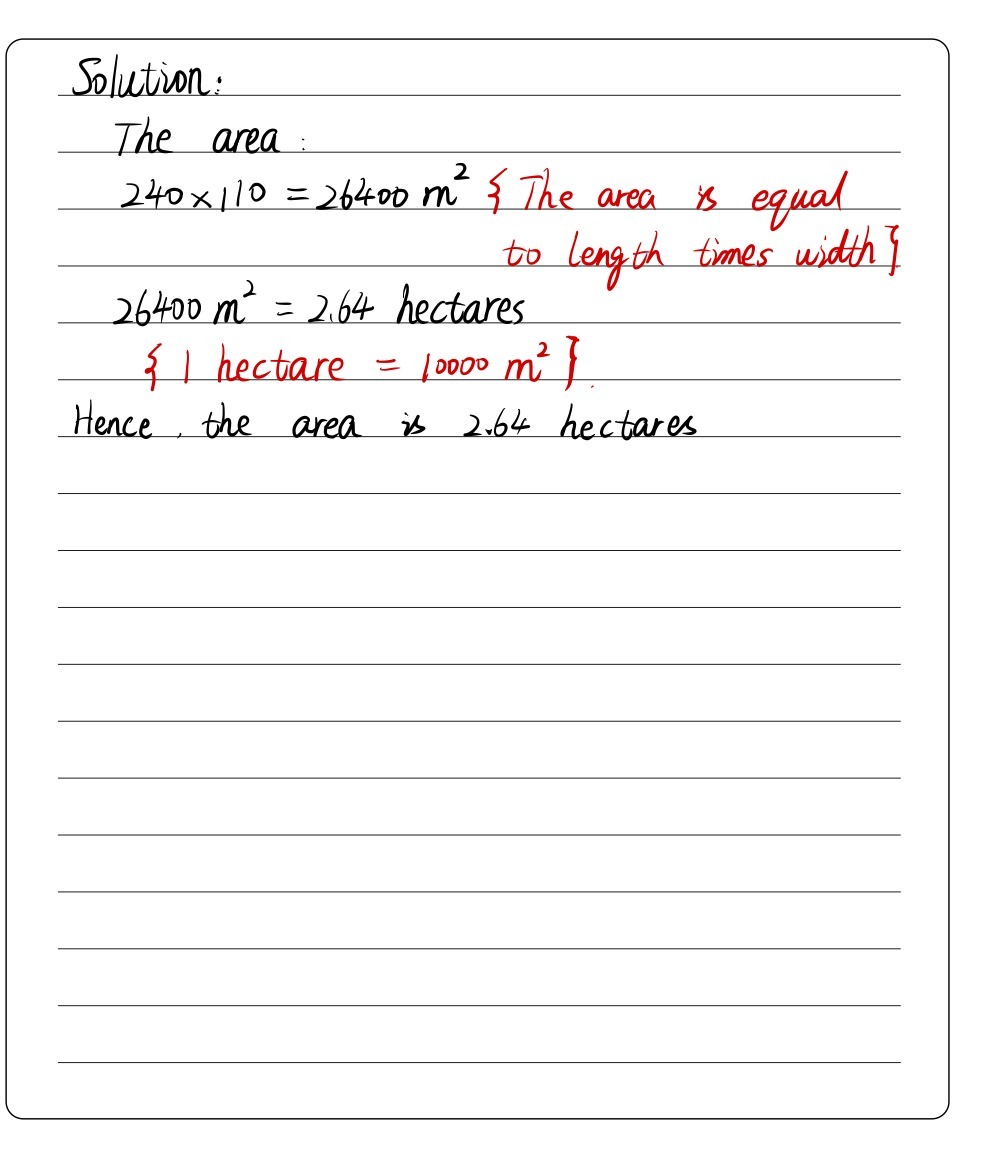 Solution:
The area:
240×110 = 26400 m² {The area is equal
to length times width}
26400 m² = 2.64 hectares
{1 hectare = 10000 m²}.
Hence, the area is 2.64 hectares